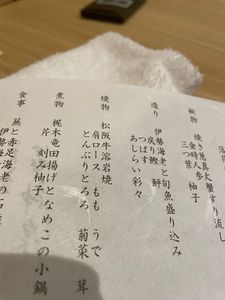 椀物 焼き葱真丈 蟹すり流し
金時人参 柚子
三つ葉
造り 伊勢海老と旬魚盛り込み
戻り鰹 鮃
つぶ貝
あしらい彩々
焼物 松阪牛溶岩焼
肩ロース もも うで
とんぶりとろろ 菊菜 茸
煮物 梶木竜田揚げとなめこの小鍋
芹 刻み柚子
食事 蕪と赤足海老の
伊勢海老